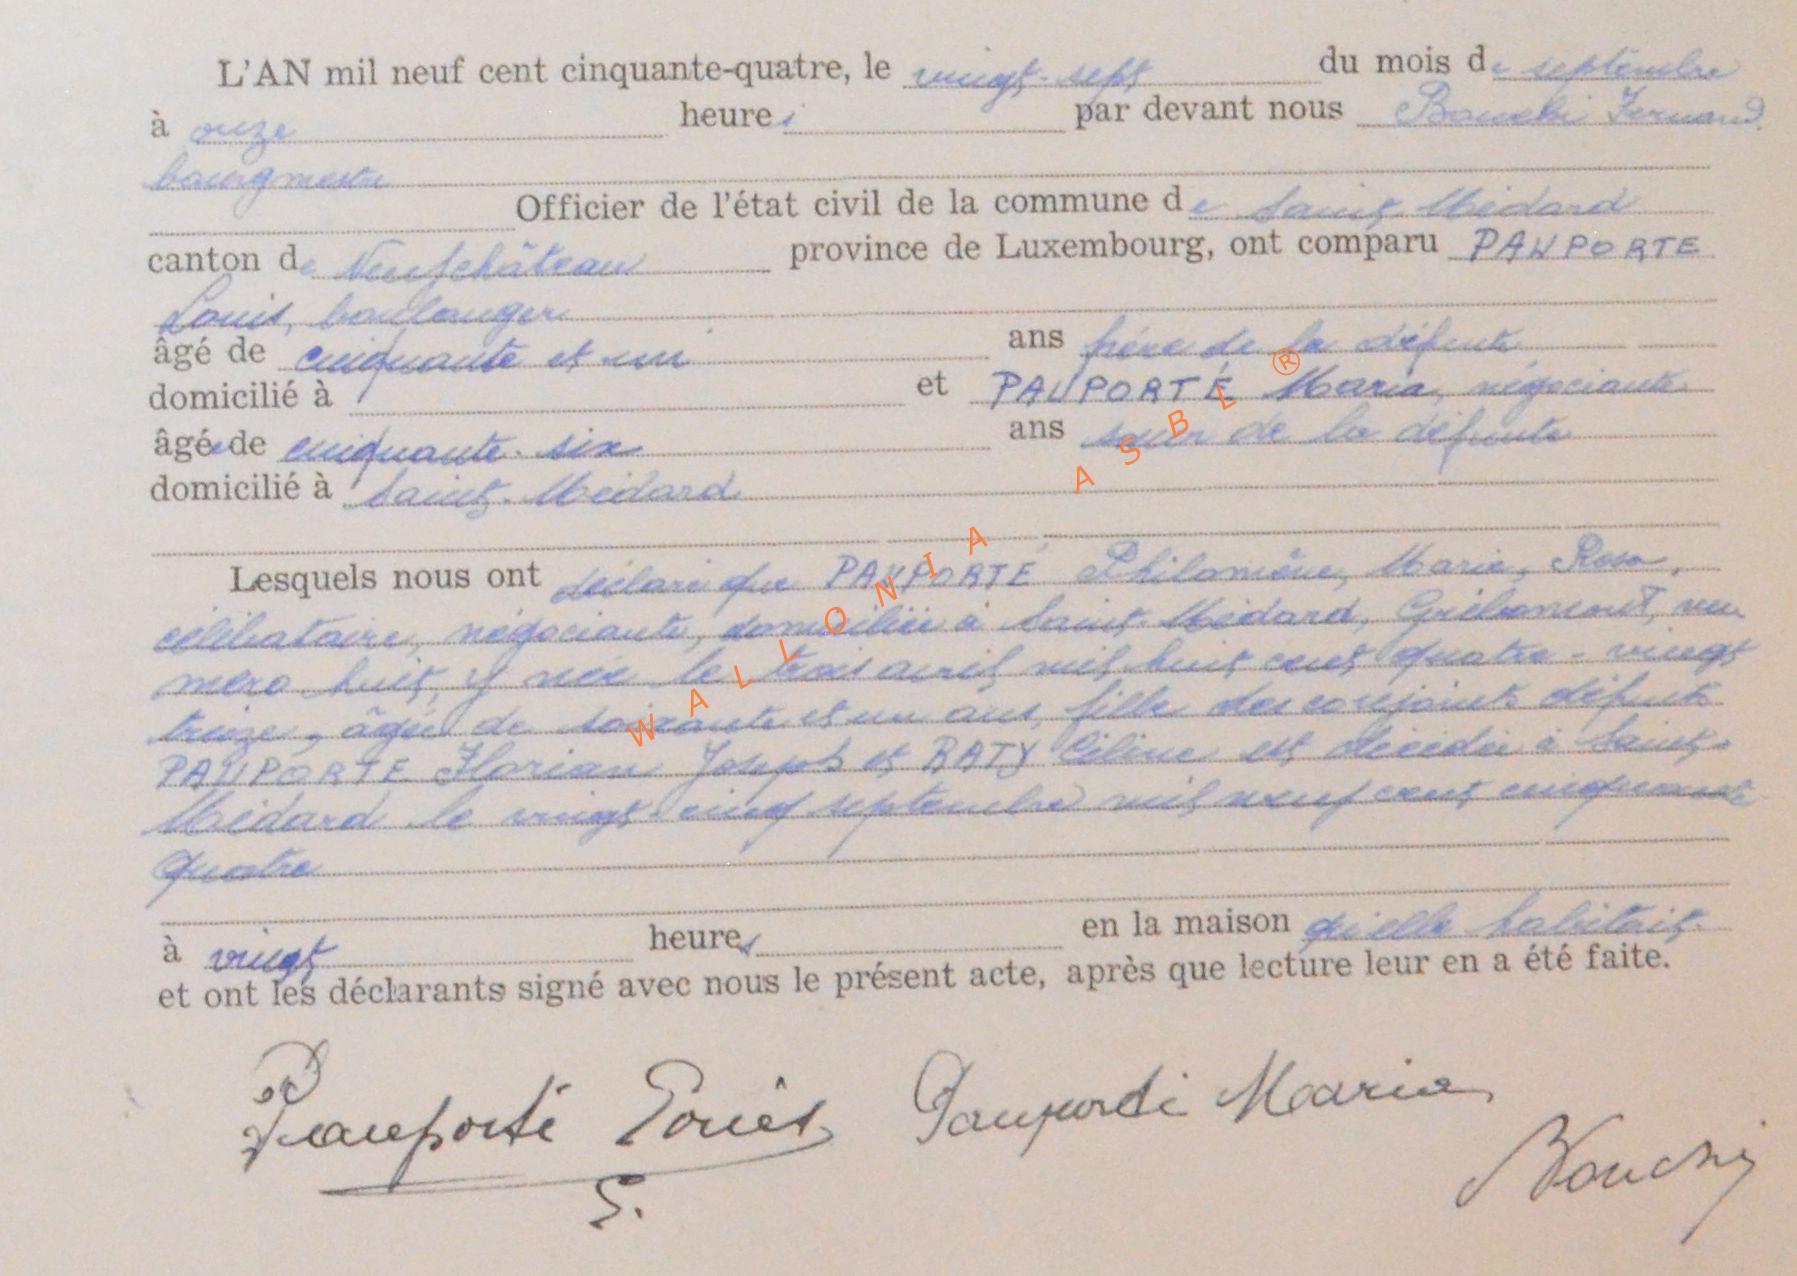 L'AN mil neuf cent cinquante-quatre, le vingt-sept du mois de septembre
à onze heures par devant nous Fernand
bourgmestre
Officier de l'état civil de la commune de Saint-Médard
canton de Neufchâteau province de Luxembourg, ont comparu PAUPORTE
Louis, boulanger
âgé de cinquante et un ans frère de la défunte
domicilié à et PAUPORTÉ Maria, négociante
âgée de cinquante-six ans sœur de la défunte
domicilié à Saint-Médard
Lesquels nous ont déclaré que PAUPORTÉ Philomène, Marie, Rosa,
célibataire, négociante, domiciliée à Saint-Médard, Gribomont, nu
méro huit, y née le trois avril mil huit cent quatre-vingt
treize, âgée de soixante et un ans, fille des conjoints défunts
PAUPORTE Florian Joseph et RATY Céline est décédée à Saint-
Médard le vingt-cinq septembre mil neuf cent cinquante
quatre
à vingt heures en la maison qu'elle habitait.
et ont les déclarants signé avec nous le présent acte, après que lecture leur en a été faite.
Pauporté Louis Pauporté Maria
WALLONIA ASBL ®